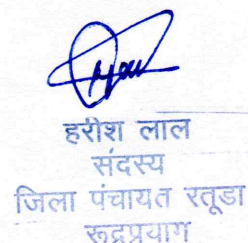 हरीश लाल
सदस्य
जिला पंचायत रतूडा
रूद्रप्रयाग